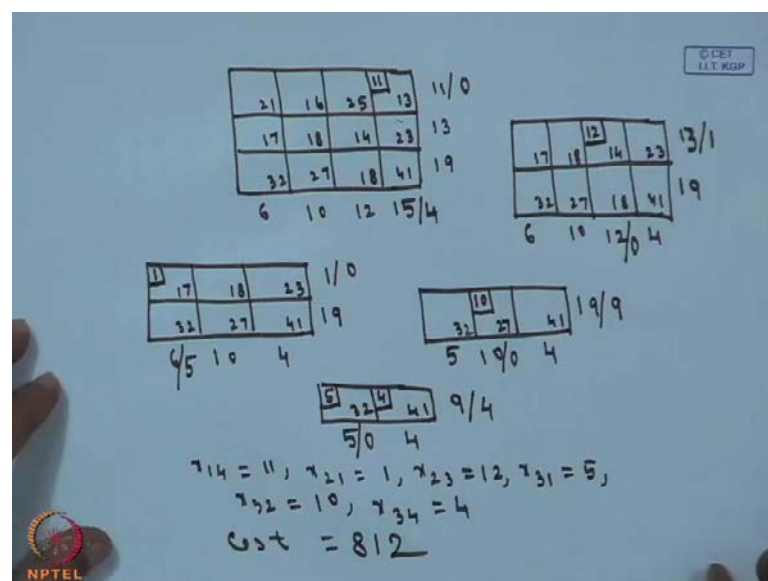 © CET
I.I.T. KGP
11
21 16 25 13 11/0
17 18 14 23 13
32 27 18 41 19
6 10 12 15/4
12
17 18 14 23 13/1
32 27 18 41 19
6 10 12/0 4
1
17 18 23 1/0
32 27 41 19
6/5 10 4
10
32 27 41 19/9
5 10/0 4
5 4
32 41 9/4
5/0 4
x14 = 11, x21 = 1, x23 = 12, x31 = 5,
x32 = 10, x34 = 4
Cost = 812
NPTEL